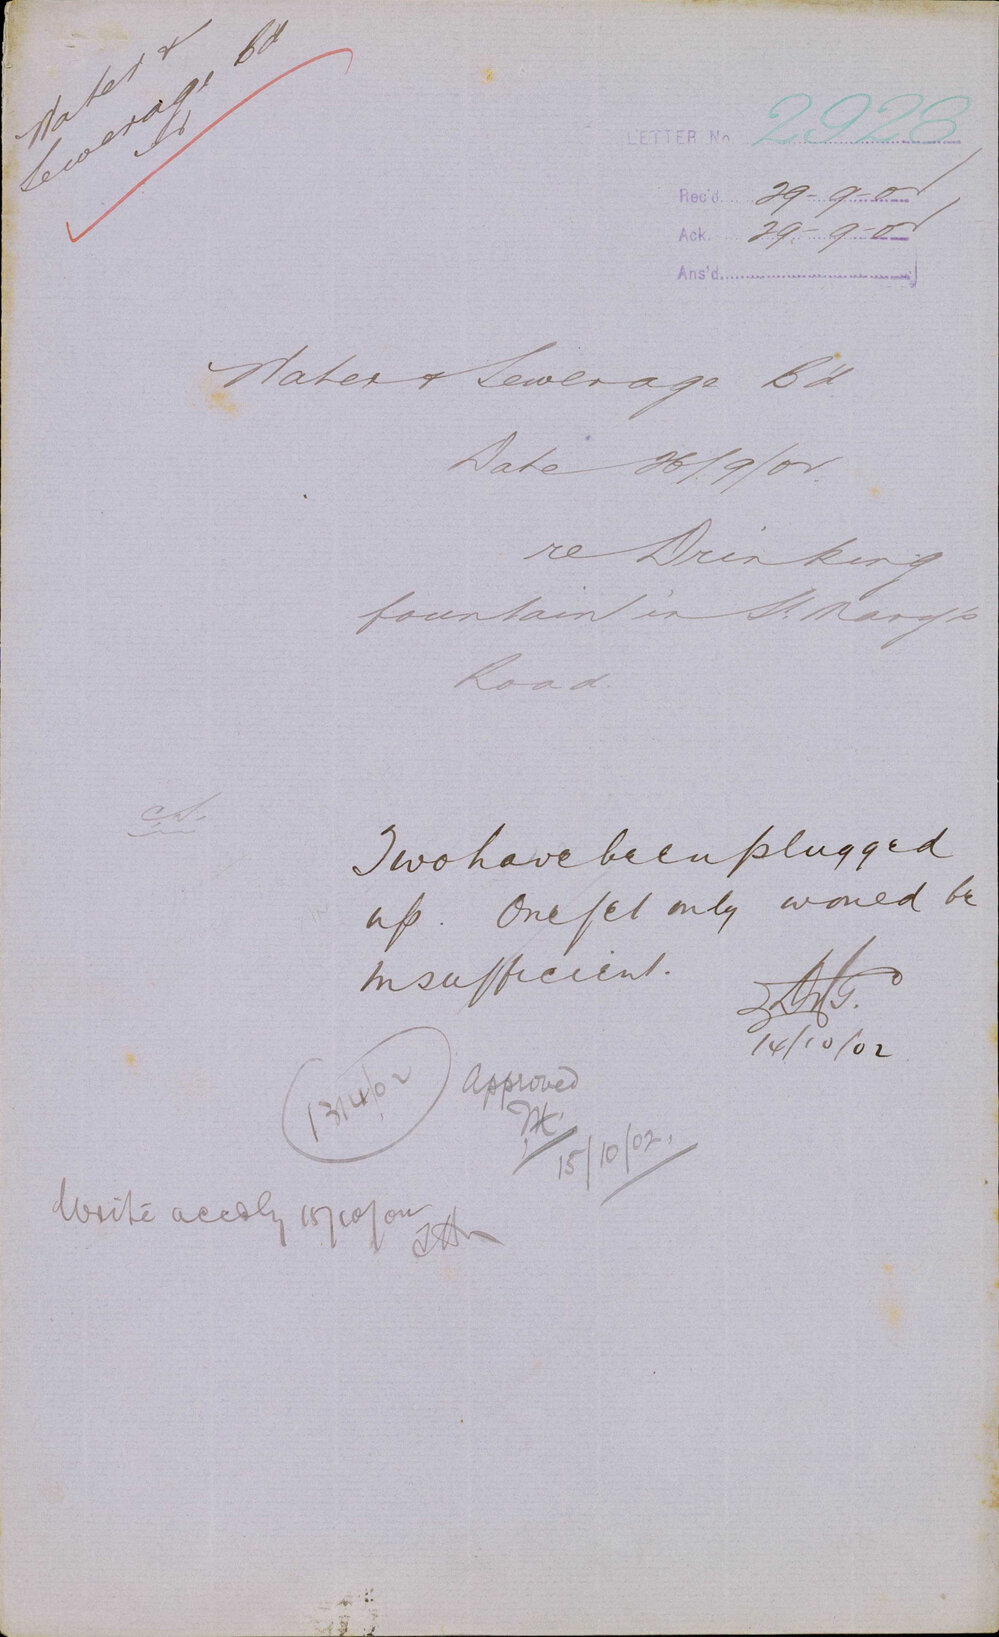 Water &
Sewerage Bd
LETTER No 2928
Rec'd. 29-9-02
Ack. 29-9-02
Ans'd.
Water & Sewerage B'd
Date 26/9/02.
re Drinking
fountain in St. Mary's
Road.
Two have been plugged
up. One jet only would be
insufficient.
14/10/02
1314/02
Approved
15/10/02.
Write accdly 15/10/02